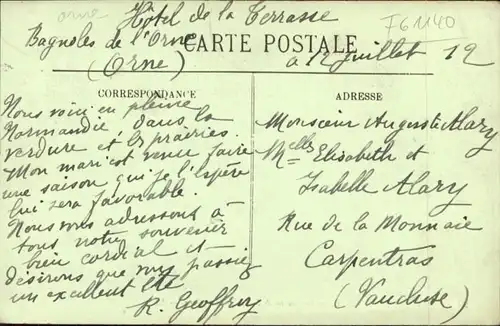 orne
Hôtel de la Terrasse
F61140
Bagnoles de l'Orne
CARTE POSTALE
(Orne)
a 12 Juillet 12
CORRESPONDANCE
Nous voici en pleine
Normandie, dans la
verdure et les prairies.
Mon mari est venu faire
une saison qui je l'espère
lui sera favorable.
Nous vous adressons à
tous notre souvenir
bien cordial et
désirons que vous passiez
un excellent été
R. Geoffroy
ADRESSE
Monsieur Auguste Alary
Melles Elisabeth et
Isabelle Alary
Rue de la Monnaie
Carpentras
(Vaucluse)